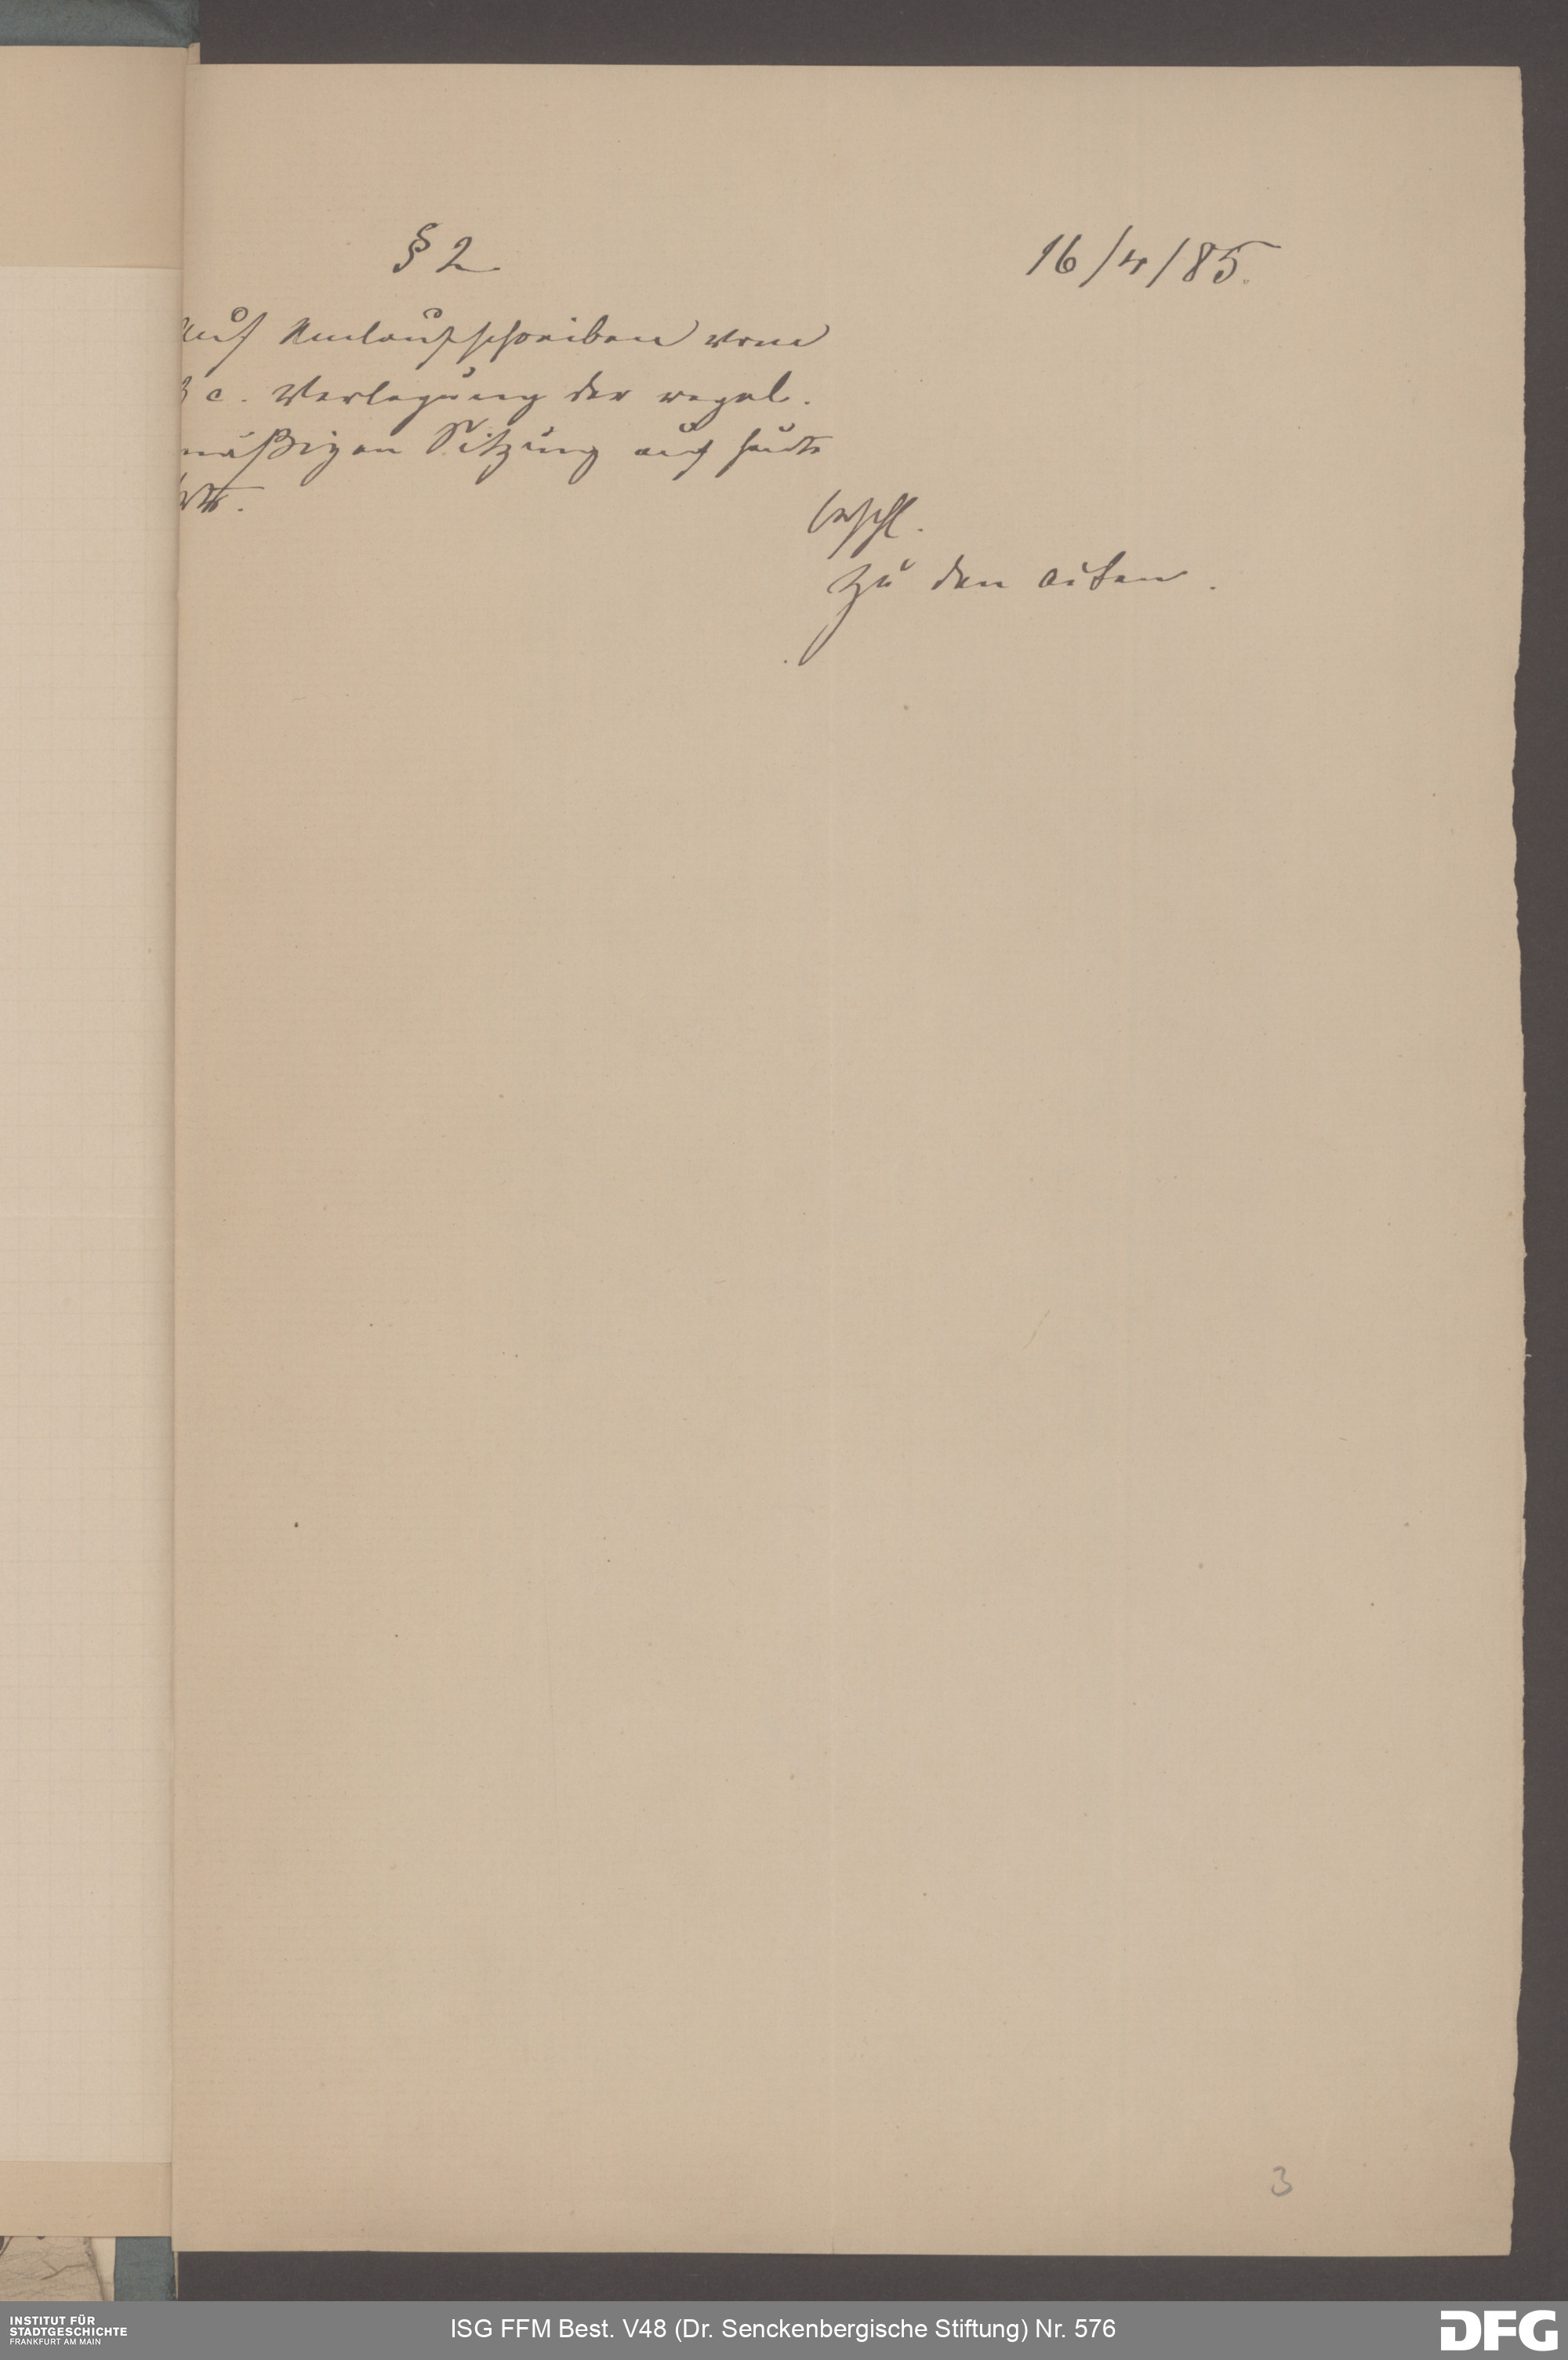 § 2
16/4/85.
Auf Umlaufschreiben vom
3 c. Verlegung der regel.
mäßigen Sitzung auf heute
betr.
beschl.
zu den Akten.
3
INSTITUT FÜR
STADTGESCHICHTE
FRANKFURT AM MAIN
ISG FFM Best. V48 (Dr. Senckenbergische Stiftung) Nr. 576
DFG